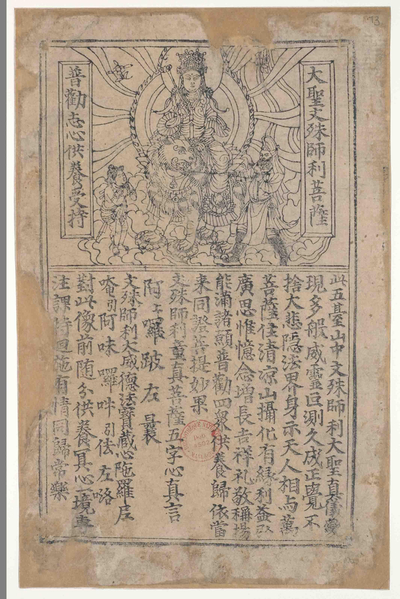 大聖文殊師利菩薩
普勸志心供養受持
此五臺山中文殊師利大聖真儀變
現多般威靈叵測久成正覺不
捨大悲隱法界身示天人相与萬
菩薩住清凉山攝化有緣利益弘
廣思惟憶念增長吉祥礼敬稱揚
能滿諸願普勸四眾供養歸依當
來同證菩提妙果
文殊師利童真菩薩五字心真言
阿上囉跛左曩
文殊師利大威德法寶藏心陁羅尼
唵引阿味囉吽引佉左咯
對此像前随分供養冀心一境專
注課持迴施有情同歸常樂